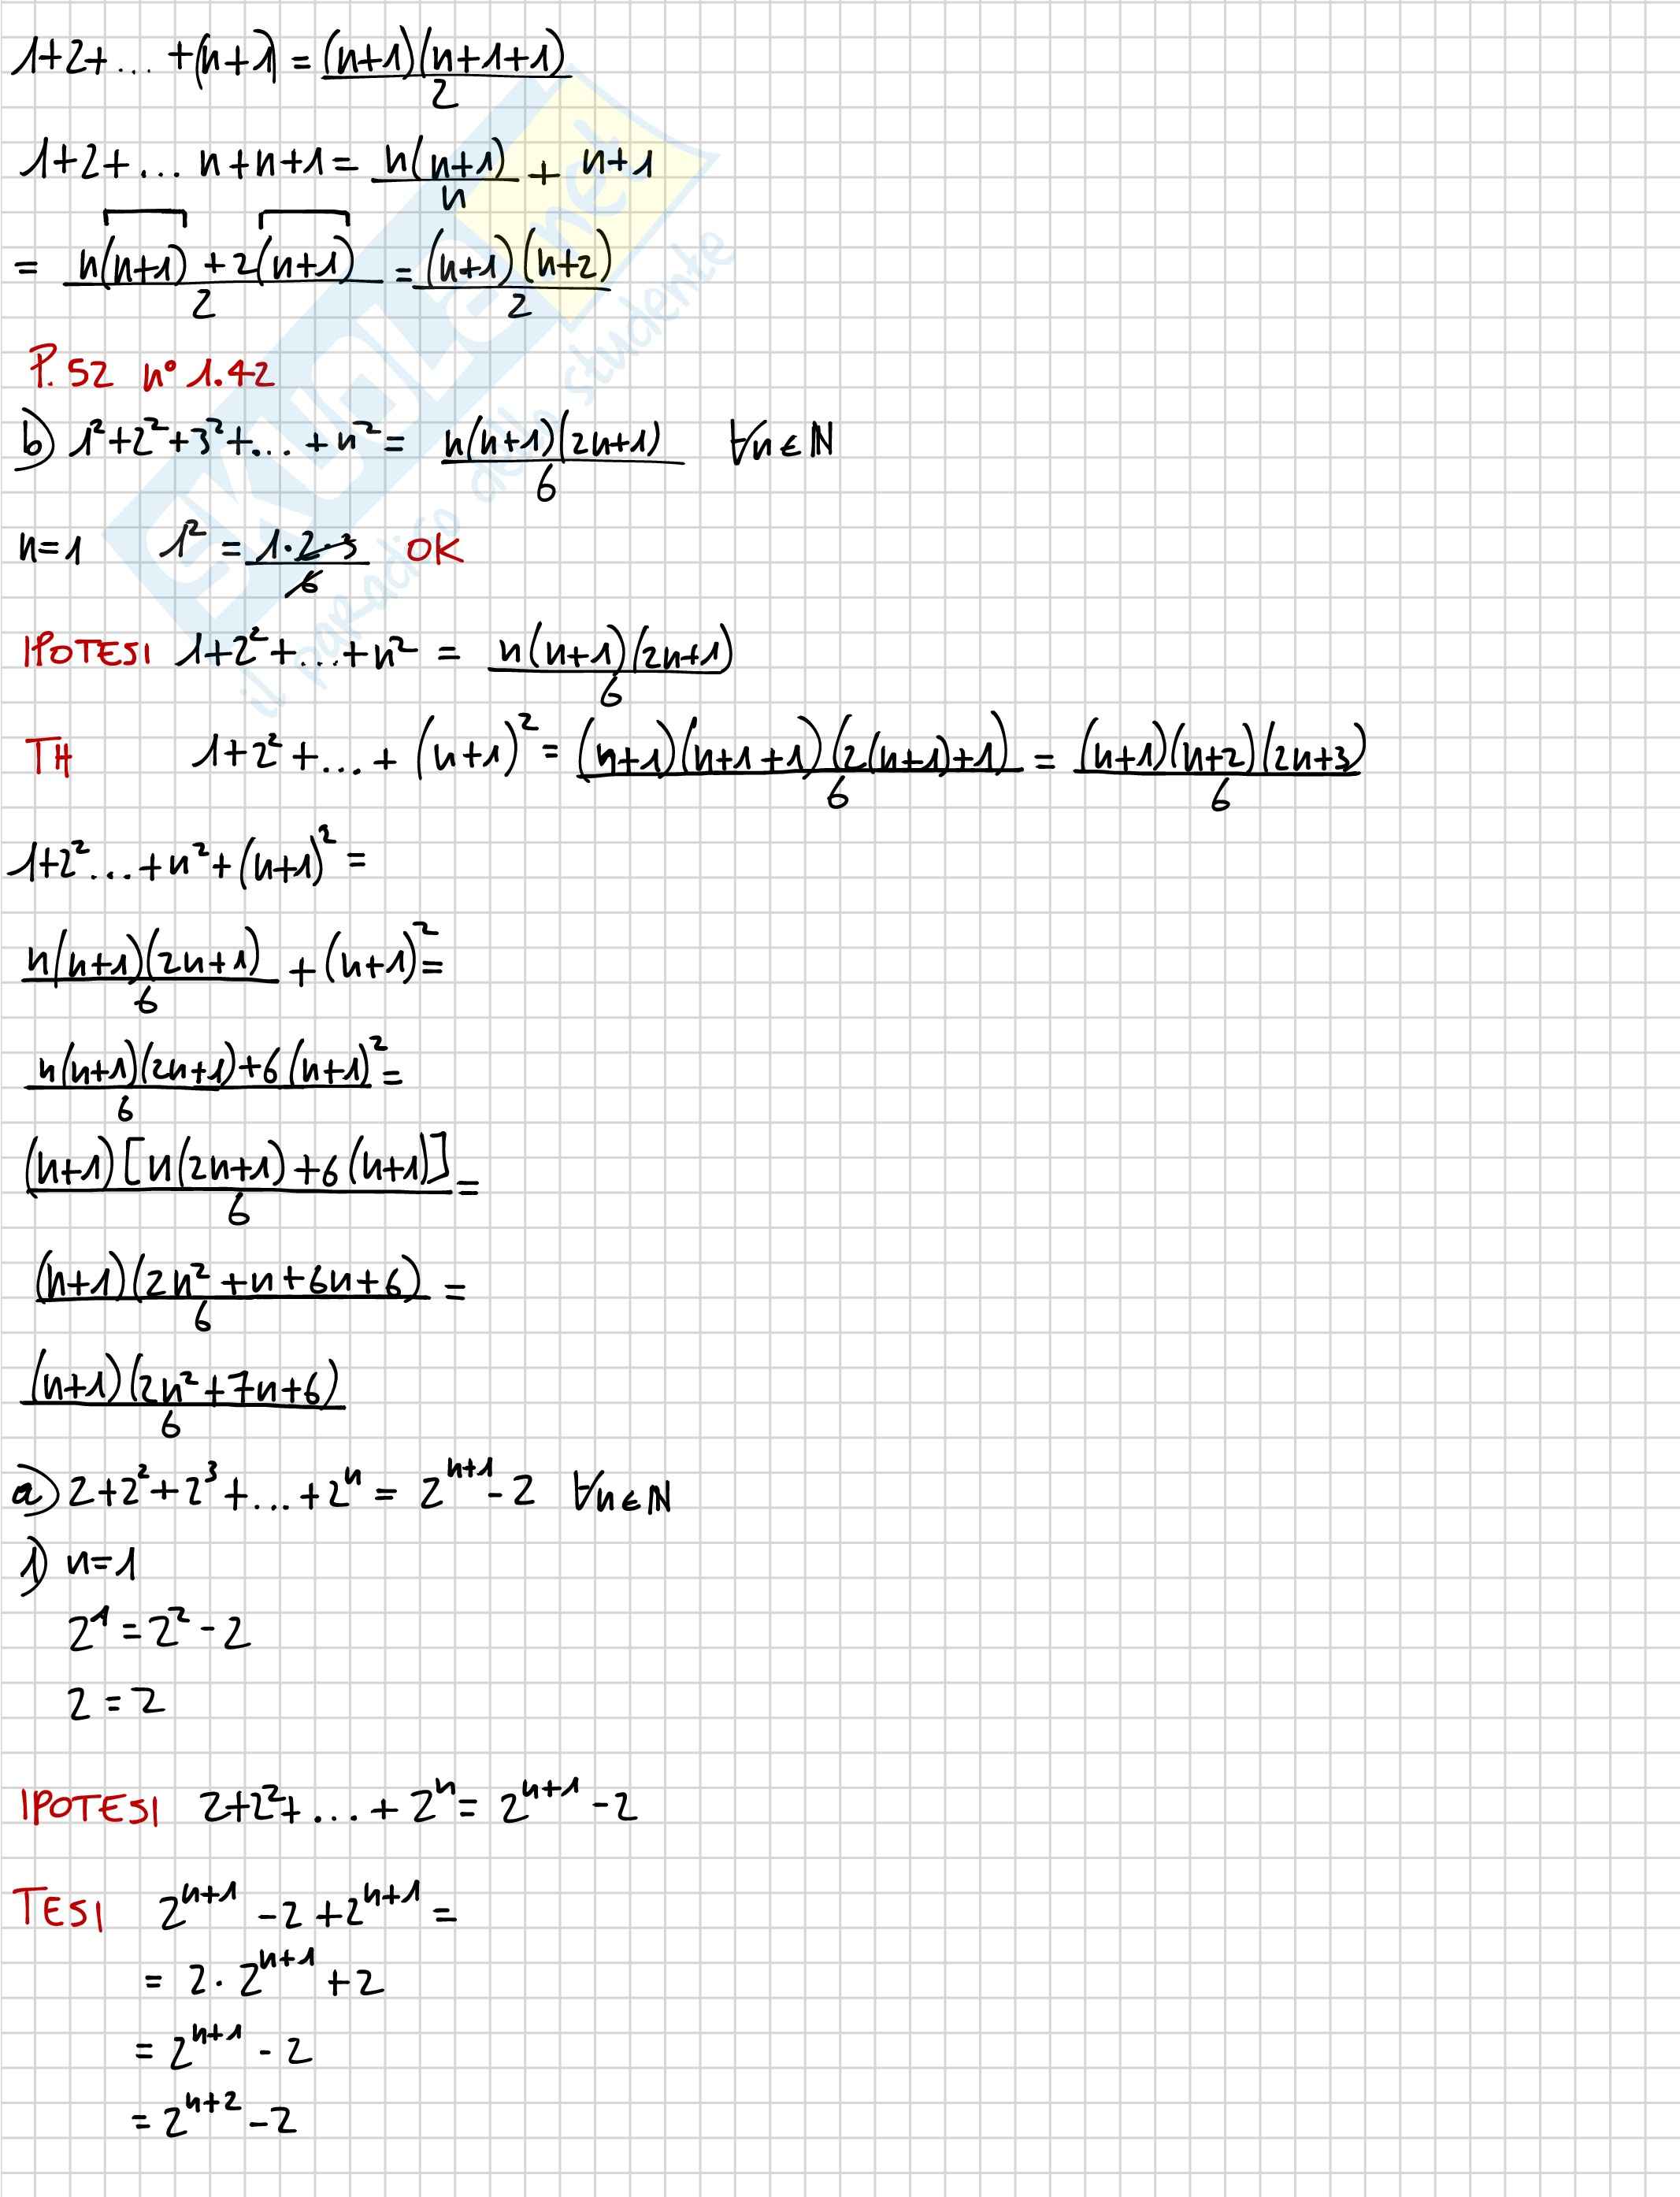 1+2+... +(n+1) = (n+1)(n+1+1)/2
1+2+... n+n+1 = n(n+1)/n + n+1
= n(n+1) + 2(n+1)/2 = (n+1)(n+2)/2
P. 52 n° 1.42
b) 1²+2²+3²+... +n² = n(n+1)(2n+1)/6 ∀n∈ℕ
n=1 1² = 1·2·3/6 OK
IPOTESI 1+2²+...+n² = n(n+1)(2n+1)/6
TH 1+2²+...+(n+1)² = (n+1)(n+1+1)(2(n+1)+1)/6 = (n+1)(n+2)(2n+3)/6
1+2²...+n²+(n+1)² =
n(n+1)(2n+1)/6 + (n+1)² =
n(n+1)(2n+1)+6(n+1)²/6 =
(n+1)[n(2n+1)+6(n+1)]/6 =
(n+1)(2n²+n+6n+6)/6 =
(n+1)(2n²+7n+6)/6
a) 2+2²+2³+...+2ⁿ = 2ⁿ⁺¹-2 ∀n∈ℕ
1) n=1
2¹ = 2² - 2
2 = 2
IPOTESI 2+2²+...+2ⁿ = 2ⁿ⁺¹-2
TESI 2ⁿ⁺¹ -2 +2ⁿ⁺¹ =
= 2·2ⁿ⁺¹ +2
= 2ⁿ⁺¹ - 2
= 2ⁿ⁺² - 2
SKUOLA.net
il paradiso dello studente